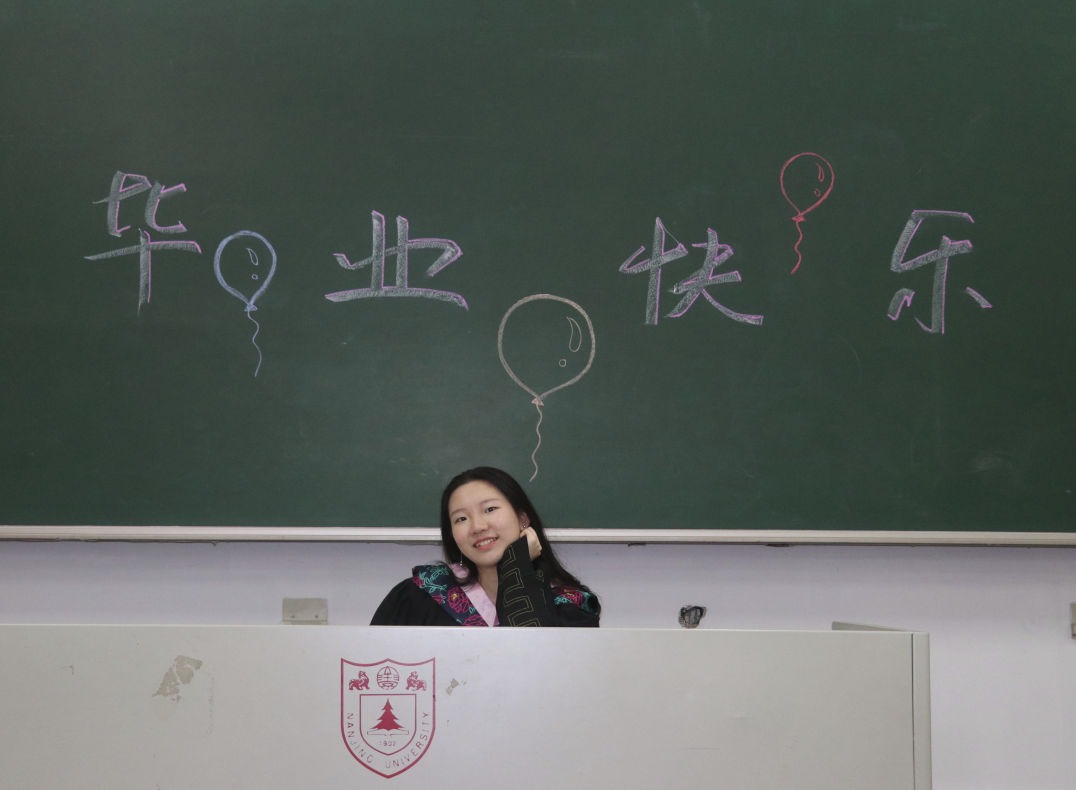 毕业快乐
1902
NANJING UNIVERSITY